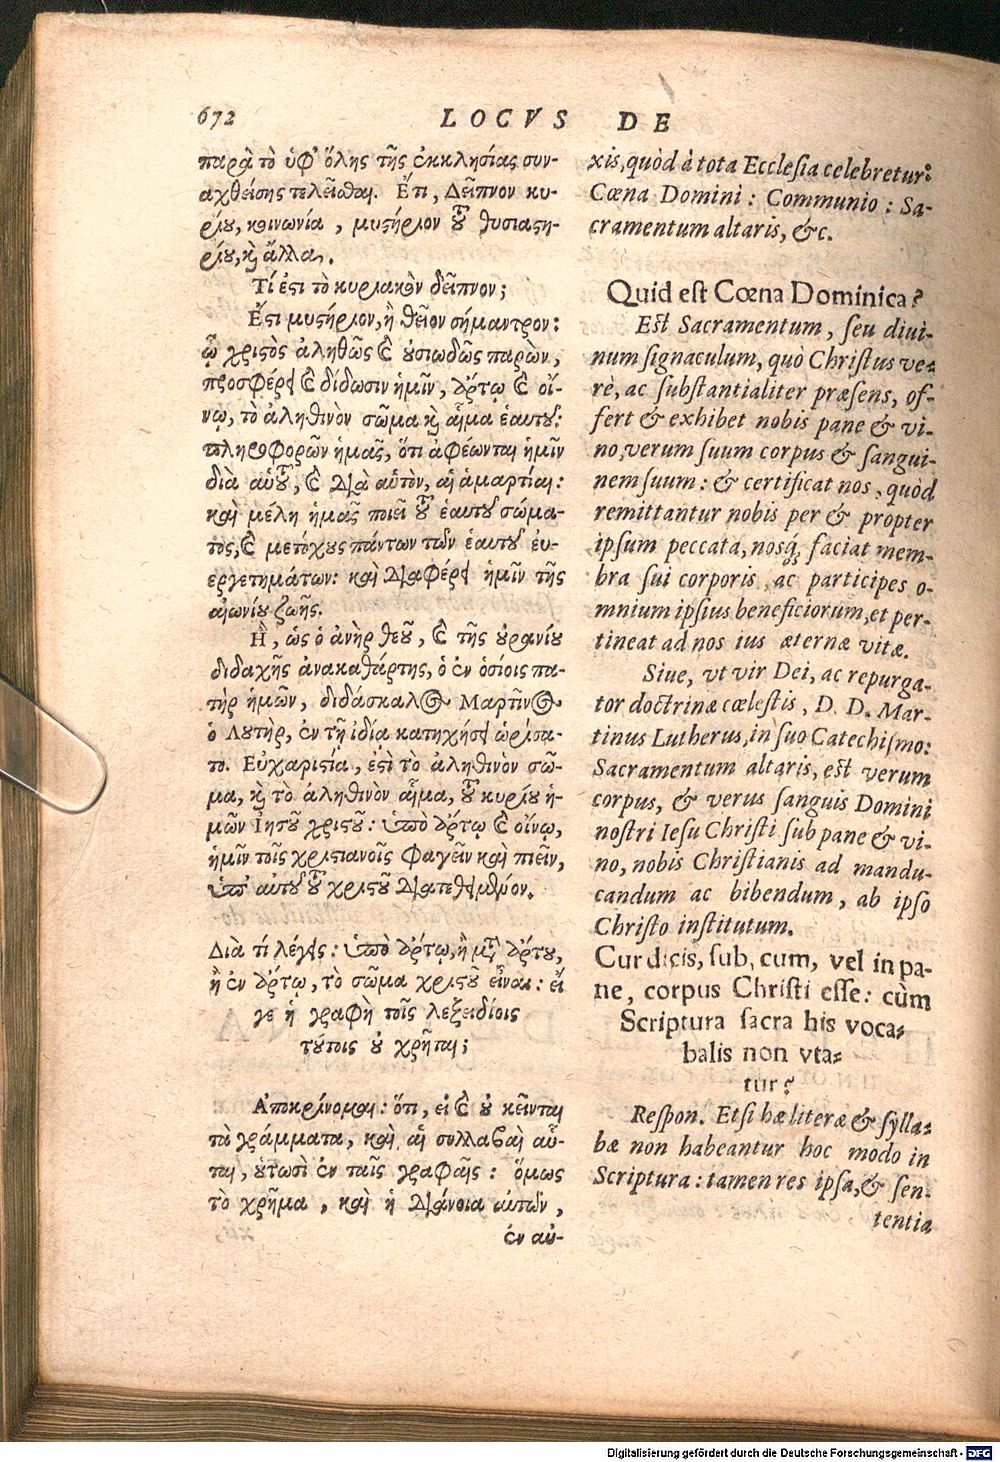 672
LOCVS DE
παρὰ τὸ ὑφ' ὅλης τῆς ἐκκλησίας συν-
αχθείσης τελεῖσθαι. Ἔτι, Δεῖπνον κυ-
ρίου, κοινωνία, μυστήριον τοῦ θυσιαστη-
ρίου, καὶ ἄλλα.
Τί ἐστι τὸ κυριακὸν δεῖπνον;
Ἔστι μυστήριον, ἢ θεῖον σήμαντρον:
ᾧ χριστὸς ἀληθῶς καὶ οὐσιωδῶς παρὼν,
προσφέρει καὶ δίδωσιν ἡμῖν, ἄρτῳ καὶ οἴ-
νῳ, τὸ ἀληθινὸν σῶμα καὶ αἷμα ἑαυτοῦ:
πληροφορῶν ἡμᾶς, ὅτι ἀφέωνται ἡμῖν
διὰ αὐτοῦ, καὶ διὰ αὐτὸν, αἱ ἁμαρτίαι:
καὶ μέλη ἡμᾶς ποιεῖ τοῦ ἑαυτοῦ σώμα-
τος, καὶ μετόχους πάντων τῶν ἑαυτοῦ εὐ-
εργετημάτων: καὶ διαφέρει ἡμῖν τῆς
αἰωνίου ζωῆς.
Ἢ, ὡς ὁ ἀνὴρ θεοῦ, καὶ τῆς οὐρανίου
διδαχῆς ἀνακαθάρτης, ὁ ἐν ὁσίοις πα-
τὴρ ἡμῶν, διδάσκαλος Μαρτῖνος
ὁ Λυτὴρ, ἐν τῇ ἰδίᾳ κατηχήσει ὡρίσα-
το. Εὐχαριστία, ἐστὶ τὸ ἀληθινὸν σῶ-
μα, καὶ τὸ ἀληθινὸν αἷμα, τοῦ κυρίου ἡ-
μῶν Ἰησοῦ χριστοῦ: ὑπὸ ἄρτῳ καὶ οἴνῳ,
ἡμῖν τοῖς χριστιανοῖς φαγεῖν καὶ πιεῖν,
ὑπ' αὐτοῦ τοῦ χριστοῦ διατεθειμένον.
Διὰ τί λέγεις: ὑπὸ ἄρτῳ, ἢ μετὰ ἄρτου,
ἢ ἐν ἄρτῳ, τὸ σῶμα χριστοῦ εἶναι: εἴ
γε ἡ γραφὴ τοῖς λεξειδίοις
τούτοις οὐ χρῆται;
Ἀποκρίνομαι: ὅτι, εἰ καὶ οὐ κεῖνται
τὰ γράμματα, καὶ αἱ συλλαβαὶ αὗ-
ται, οὑτωσὶ ἐν ταῖς γραφαῖς: ὅμως
τὸ χρῆμα, καὶ ἡ διάνοια αὐτῶν,
ἐν αὐ-
xis, quòd à tota Ecclesia celebretur:
Cœna Domini: Communio: Sa-
cramentum altaris, &c.
Quid est Cœna Dominica?
Est Sacramentum, seu diui-
num signaculum, quò Christus ve-
rè, ac substantialiter præsens, of-
fert & exhibet nobis pane & vi-
no, verum suum corpus & sangui-
nem suum: & certificat nos, quòd
remittantur nobis per & propter
ipsum peccata, nosq́; faciat mem-
bra sui corporis, ac participes o-
mnium ipsius beneficiorum, et per-
tineat ad nos ius æternæ vitæ.
Siue, vt vir Dei, ac repurga-
tor doctrinæ cœlestis, D. D. Mar-
tinus Lutherus, in suo Catechismo:
Sacramentum altaris, est verum
corpus, & verus sanguis Domini
nostri Iesu Christi sub pane & vi-
no, nobis Christianis ad mandu-
candum ac bibendum, ab ipso
Christo institutum.
Cur dicis, sub, cum, vel in pa-
ne, corpus Christi esse: cùm
Scriptura sacra his voca-
balis non vta-
tur?
Respon. Etsi hæ literæ & sylla-
bæ non habeantur hoc modo in
Scriptura: tamen res ipsa, & sen-
tentia
Digitalisierung gefördert durch die Deutsche Forschungsgemeinschaft - DFG